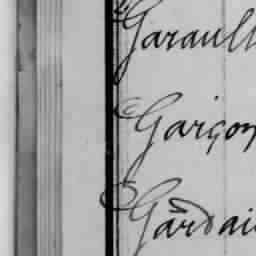 Garault
Garçon
Gardai